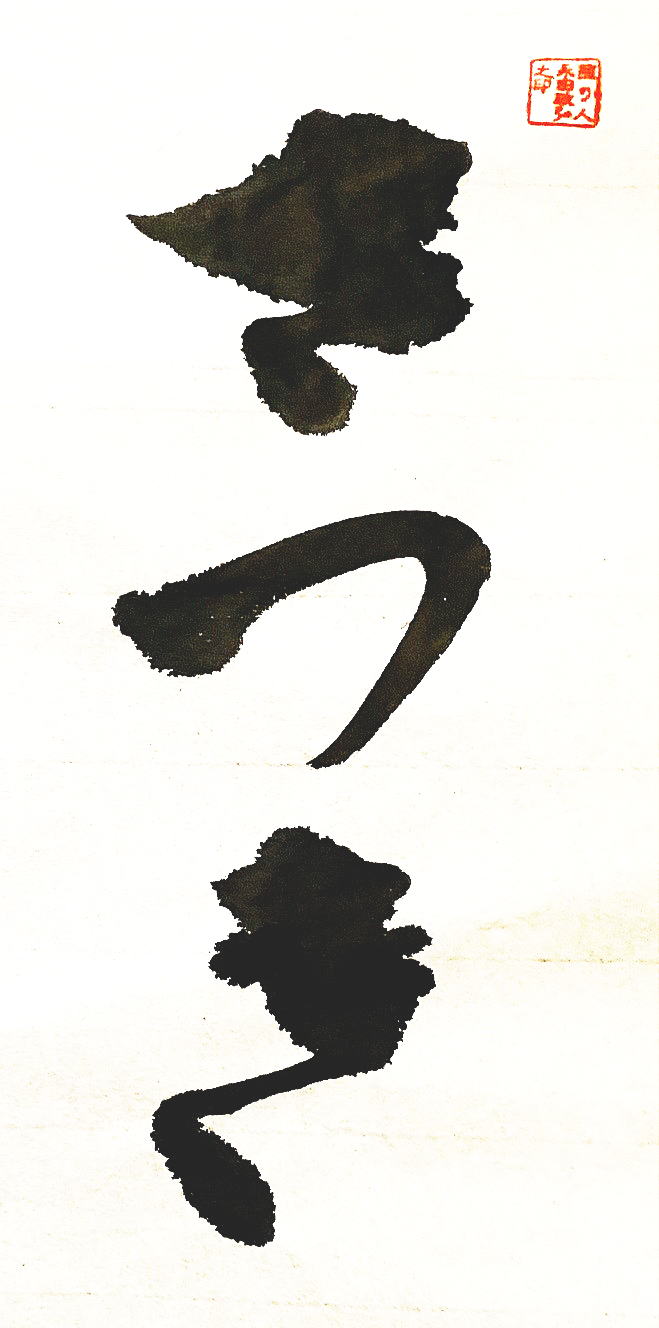 さつき